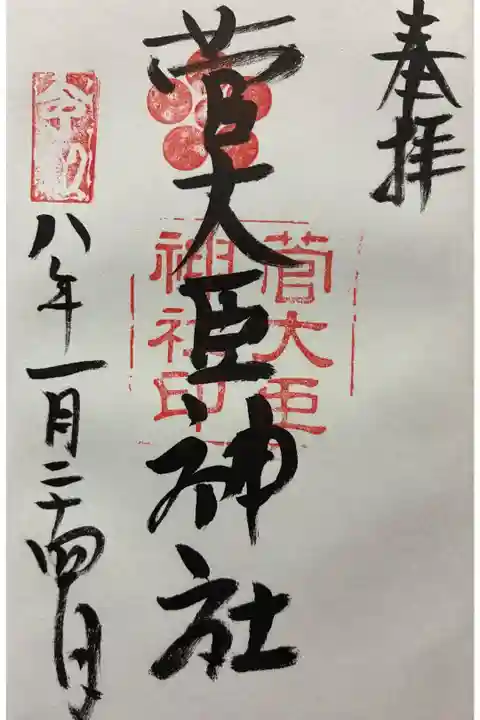 奉拝
菅大臣神社
菅大臣
神社印
令和
八年一月二十四日